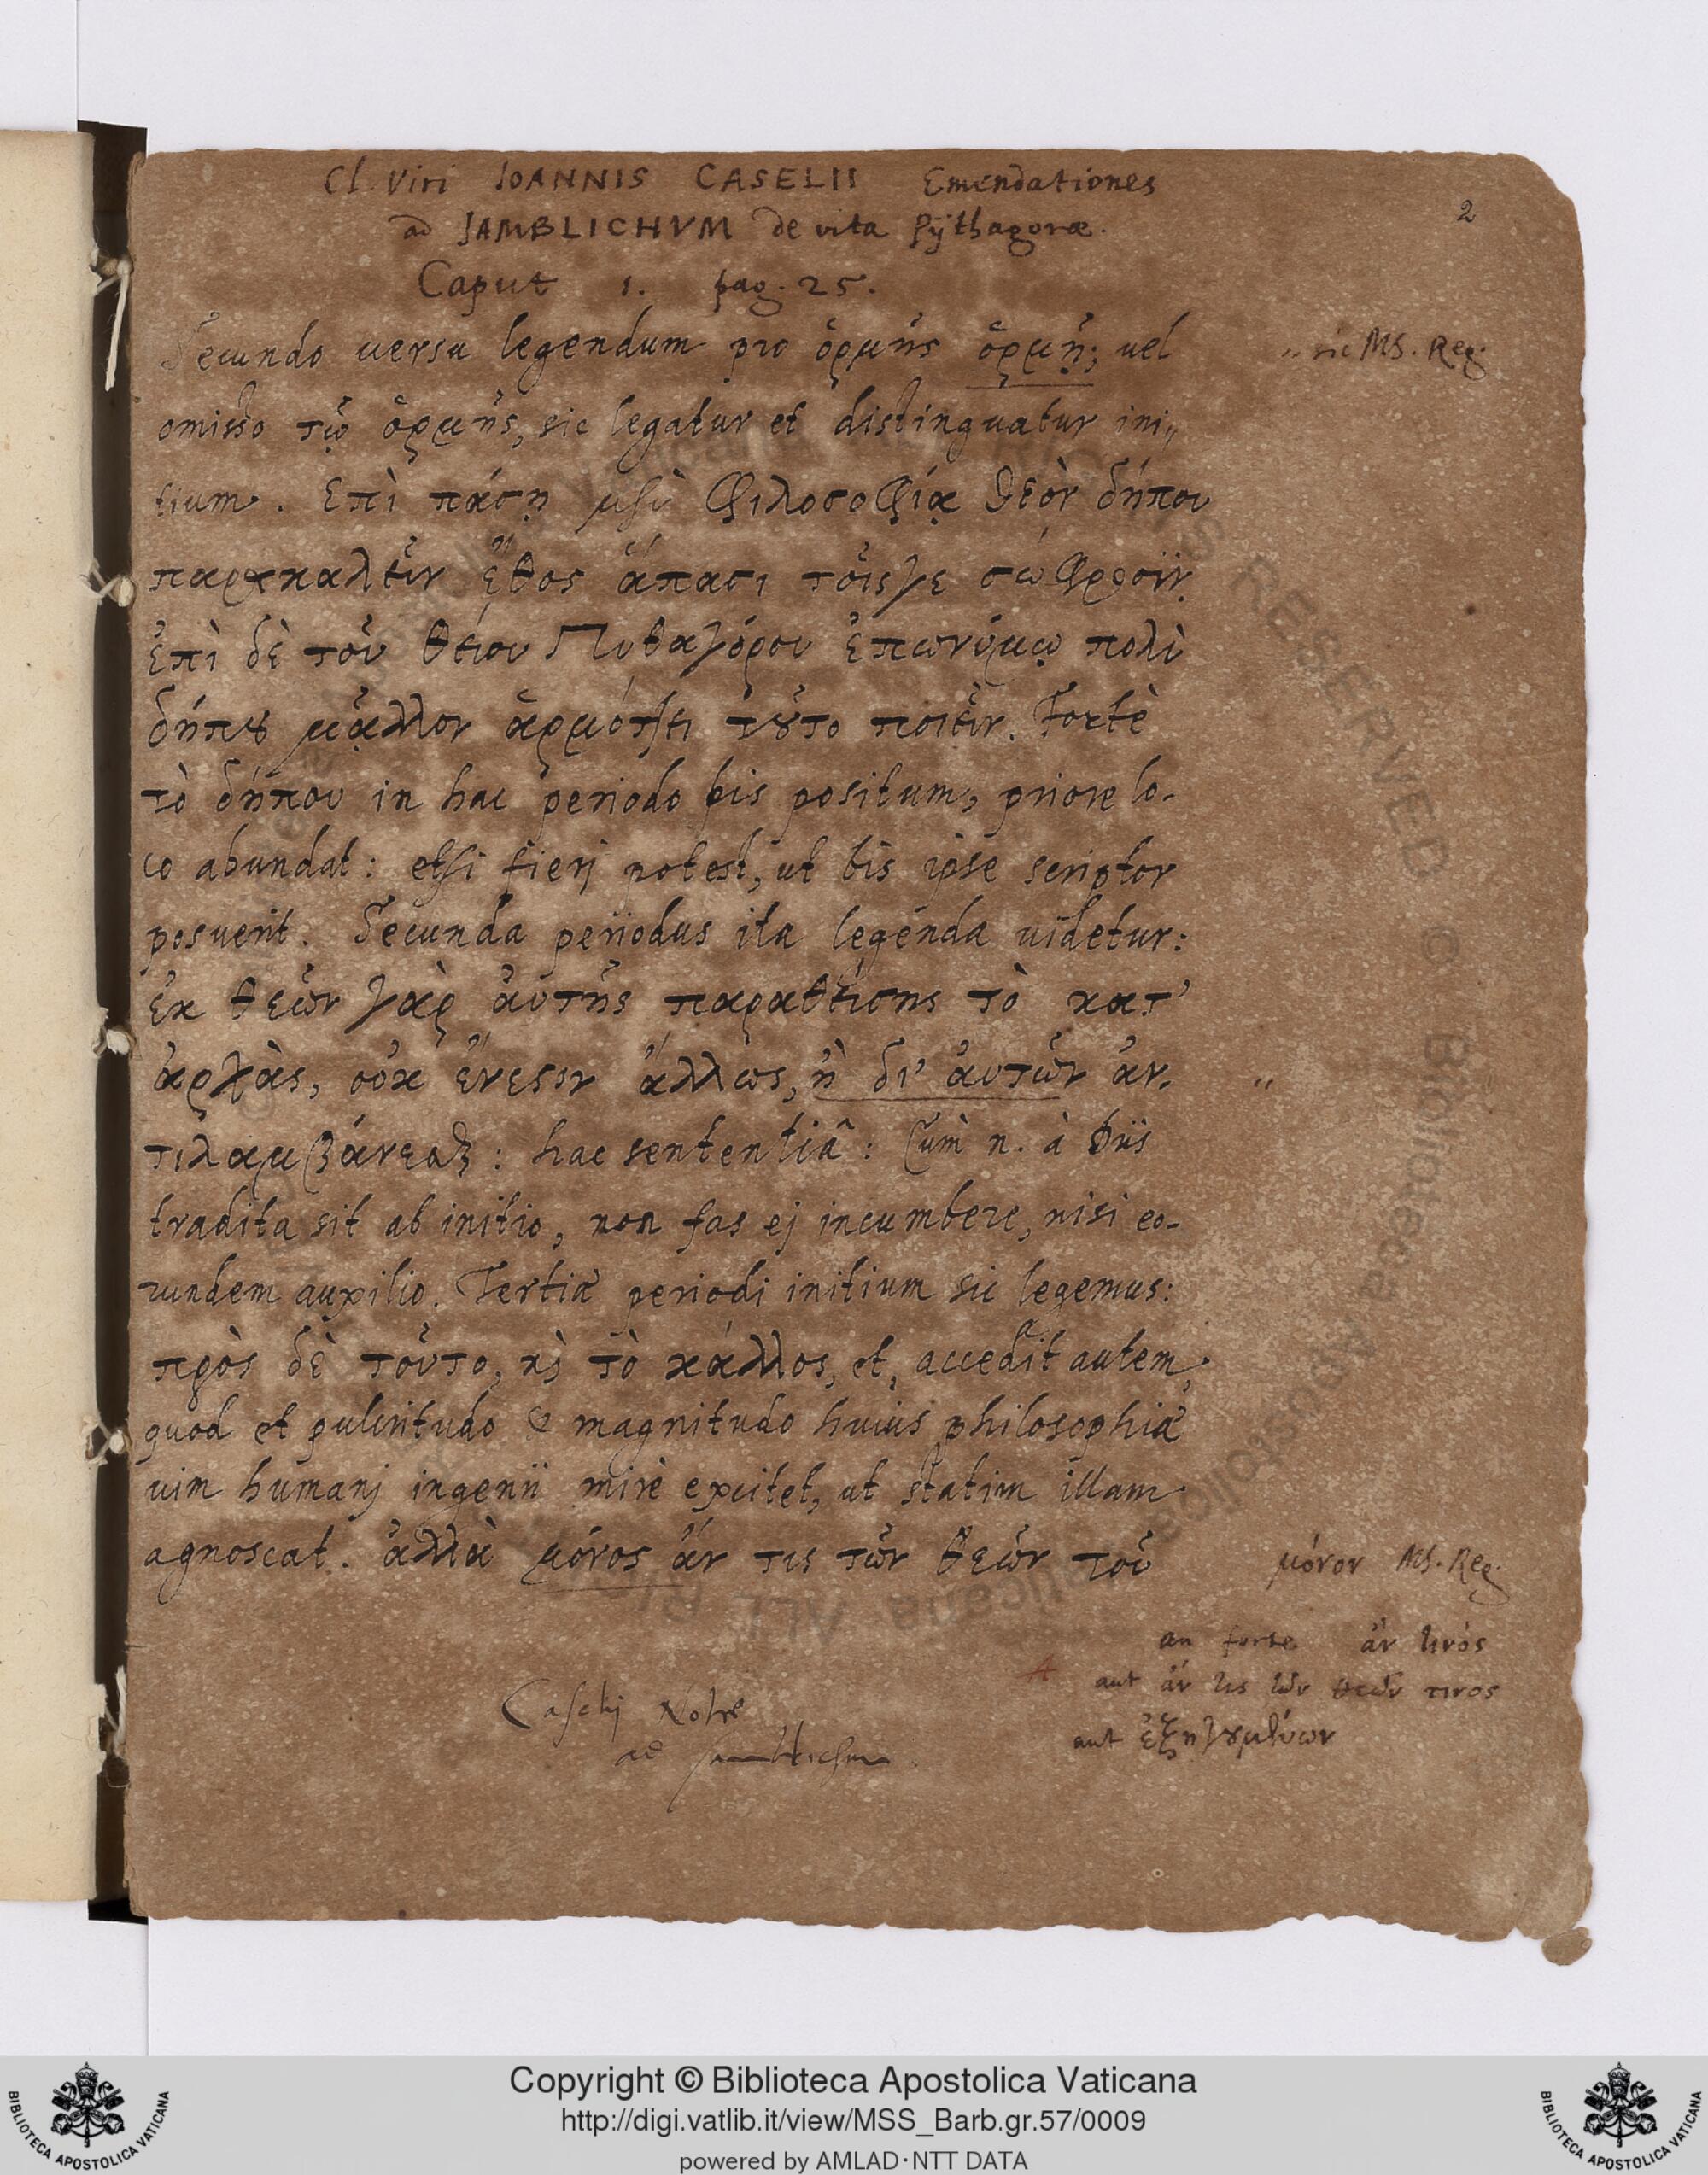 Cl. Viri IOANNIS CASELII Emendationes
2
ad IAMBLICHVM de vita Pÿthagoræ.
Caput 1. pag. 25.
Secundo uersu legendum pro ὁρμῆς ὁρμῇ; uel
„ sic MS. Reg.
omisso τῷ ὁρμῆς, sic legatur et distinguatur ini„
tium. Ἐπὶ πάσῃ μὲν φιλοσοφίᾳ θεὸν δήπου
παρακαλεῖν ἔθος ἅπασι τοῖς γε σώφροσιν.
ἐπὶ δὲ τοῦ θείου Πυθαγόρου ἐπωνύμῳ πολὺ
δήπου μᾶλλον ἁρμόττει τοῦτο ποιεῖν. Fortè
τὸ δήπου in hac periodo bis positum, priore lo-
co abundat: etsi fierj potest, ut bis ipse scriptor
posuerit. Secunda periodus ita legenda uidetur:
ἐκ θεῶν γὰρ αὐτῆς παραθείσης τὸ κατ’
ἀρχὰς, οὐκ ἔνεστιν ἄλλως, ἢ δι’ αὐτῶν ἀν-
„
τιλαμβάνεσθαι: hac sententiâ: Cùm n. à Diis
tradita sit ab initio, non fas ej incumbere, nisi eo-
rundem auxilio. Tertiæ periodi initium sic legemus:
πρὸς δὲ τοῦτο, καὶ τὸ κάλλος, et, accedit autem,
quod et pulcritudo & magnitudo huius philosophiæ
uim humanj ingenii mirè excitet, ut statim illam
agnoscat. ἀλλὰ μόνος ἄν τις τῶν θεῶν τοῦ
μόνον MS. Reg.
an forte ἄν τινός
A aut ἄν τις τῶν θεῶν τινος
aut ἐξηγουμένων
Caselij Notæ
ad Jamblichum
Copyright © Biblioteca Apostolica Vaticana
http://digi.vatlib.it/view/MSS_Barb.gr.57/0009
powered by AMLAD·NTT DATA
BIBLIOTECA APOSTOLICA VATICANA
BIBLIOTECA APOSTOLICA VATICANA